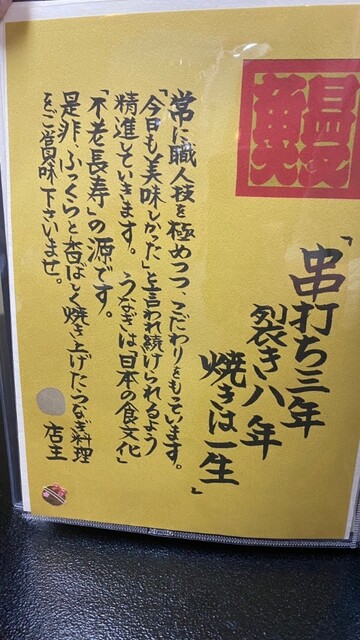 「串打ち三年
裂き八年
焼きは一生」
常に職人技を極めつつ、こだわりをもっています。
「今日も美味しかった」と言われ続けられるよう
精進していきます。うなぎは「日本の食文化」
「不老長寿」の源です。
是非、ふっくらと香ばしく焼き上げたうなぎ料理
をご賞味下さいませ。
店主